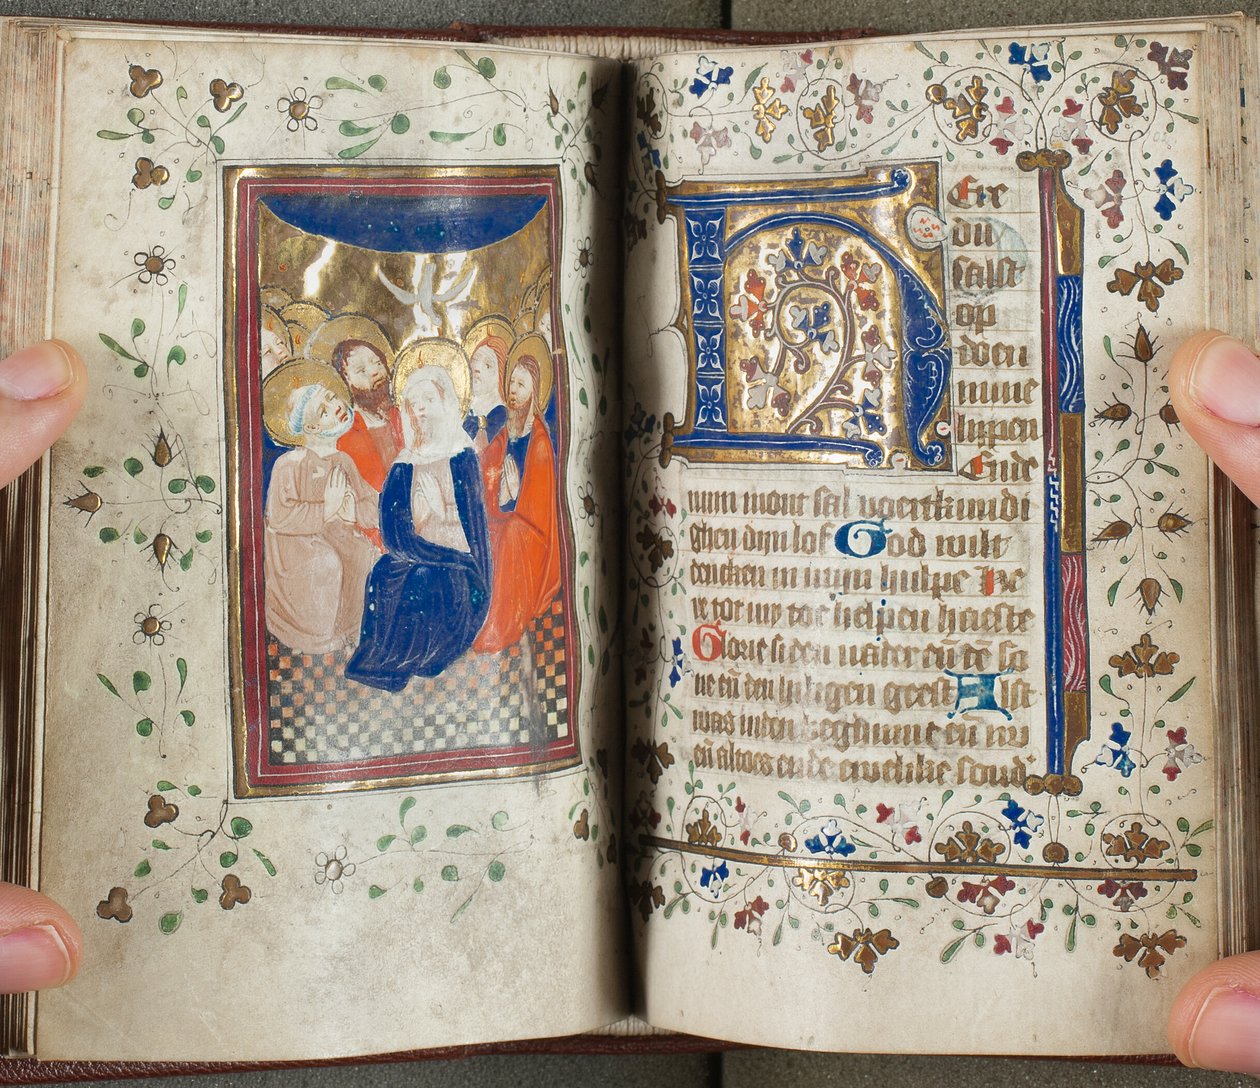 HEre
du
salst
op
doen
mine
lippen
Ende
mijn mont sal voertkundi
ghen dijn lof God wilt
dencken in mijn hulpe he
re tot my toe helpen haeste
Glorie si den uader eñ dē so
ne eñ den hilligen geest Alst
was inden beghinne eñ nv
eñ altoes ende ewelike sond